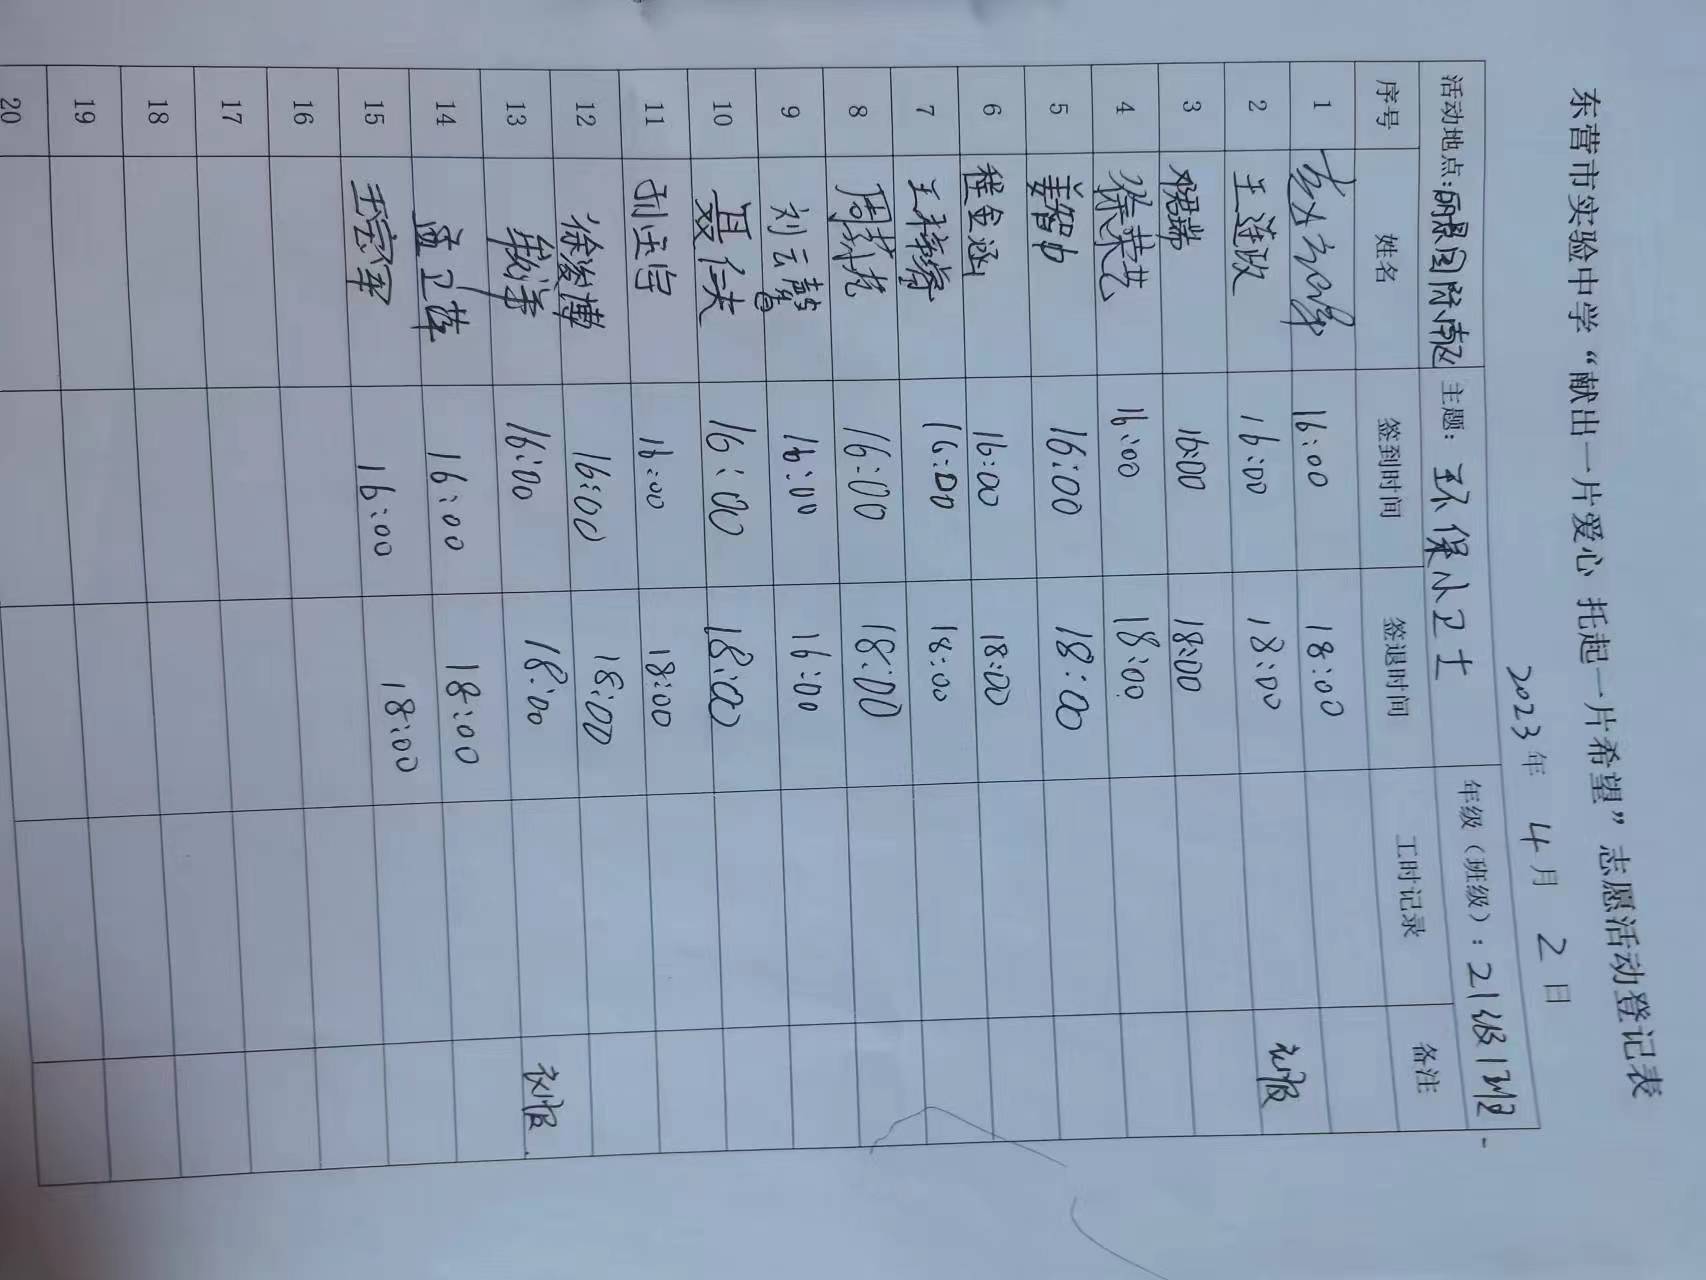 东营市实验中学“献出一片爱心 托起一片希望”志愿活动登记表
2023年 4月 2日
活动地点:丽景国际南区 主题: 环保小卫士 年级（班级）: 21级1班
序号 姓名 签到时间 签退时间 工时记录 备注
1 16:00 18:00
2 王逢政 16:00 18:00 初服
3 16:00 18:00
4 徐荣艺 16:00 18:00
5 姜智中 16:00 18:00
6 程金涵 16:00 18:00
7 王梓睿 16:00 18:00
8 16:00 18:00
9 刘云 16:00 16:00
10 聂仁夫 16:00 18:00
11 刘玉宇 16:00 18:00
12 徐浚博 16:00 18:00
13 16:00 18:00 初服
14 孟卫萍 16:00 18:00
15 王宝军 16:00 18:00
16
17
18
19
20